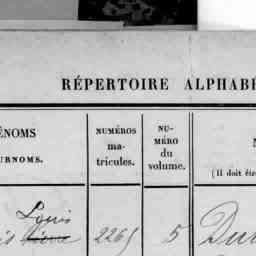 RÉPERTOIRE ALPHABÉ
ÉNOMS
URNOMS.
NUMÉROS
ma-
tricules.
NU-
MÉRO
du
volume.
(Il doit êtr
Louis
is Pierre 2265 5 Du